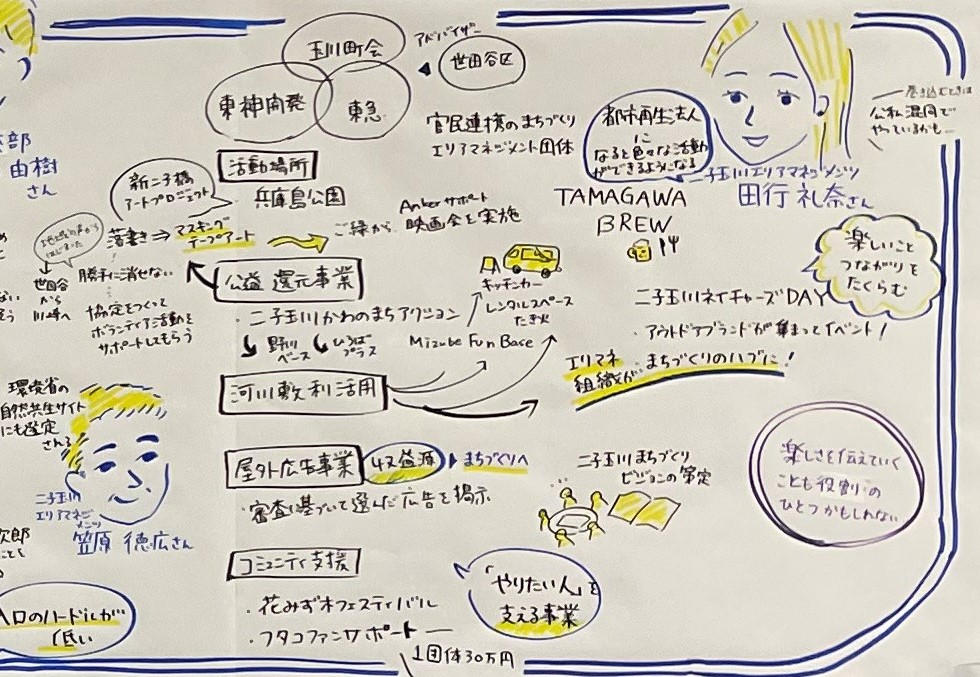 玉川町会
アドバイザー
世田谷区
東神開発
東急
官民連携のまちづくり
エリアマネジメント団体
都市再生法人
に
なると色々な活動
ができるようになる
巻き込むときは
公私混同で
やっているかも…
二子玉川エリアマネジメンツ
田行 礼奈さん
由樹
さん
活動場所
兵庫島公園
新二子橋
アートプロジェクト
落書き⇒マスキング
テープアート
ご縁から
Ankerサポート
映画会を実施
TAMAGAWA
BREW
楽しいこと
つながりを
たくらむ
世田谷
から
川崎へ
勝手に消せない
協定をつくって
ボランティア活動を
サポートしてもらう
公益還元事業
・二子玉川かわのまちアクション
野川
ベース
ひろば
プラス
Mizube Fun Base
キッチンカー
レンタルスペース
たき火
二子玉川ネイチャーズDAY
・アウトドアブランドが集まってイベント!
エリマネ
組織が、まちづくりのハブに!
河川敷利活用
環境省の
自然共生サイト
にも選定
される
二子玉川
エリアマネジ
メンツ
笠原 徳広さん
屋外広告事業
収益源
まちづくりへ
・審査に基づいて選んだ広告を掲示
二子玉川まちづくり
ビジョンの策定
楽しさを伝えていく
ことも役割の
ひとつかもしれない
コミュニティ支援
・花みず木フェスティバル
・フタコファンサポート
1団体30万円
「やりたい人」を
支える事業
入口のハードルが
低い